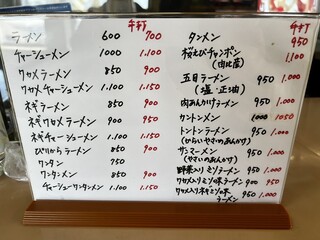 半打
ラーメン 600 700
チャーシューメン 1000 1.100
ワカメラーメン 850 900
ワカメチャーシューメン 1.100 1.150
ネギラーメン 850 900
ネギワカメラーメン 900 950
ネギチャーシューメン 1.100 1.150
ぴりからラーメン 850 900
ワンタン 750
ワンタンメン 850 900
チャーシューワンタンメン 1.100 1.150
半打
タンメン 950
桜えびチャンポン 1.100
五目ラーメン 950 1.000
(塩・正油)
肉あんかけラーメン 950 1.000
カントンメン 1000 1050
トントンラーメン 950 1.000
(からいやさいのあんかけ)
サンマーメン 950 1.000
(やさいのあんかけ)
野菜入りミソラーメン 950 1.000
ワカメ入りミソ味ラーメン 900 950
ワカメ入りネギミソ味 950 1.000
ラーメン